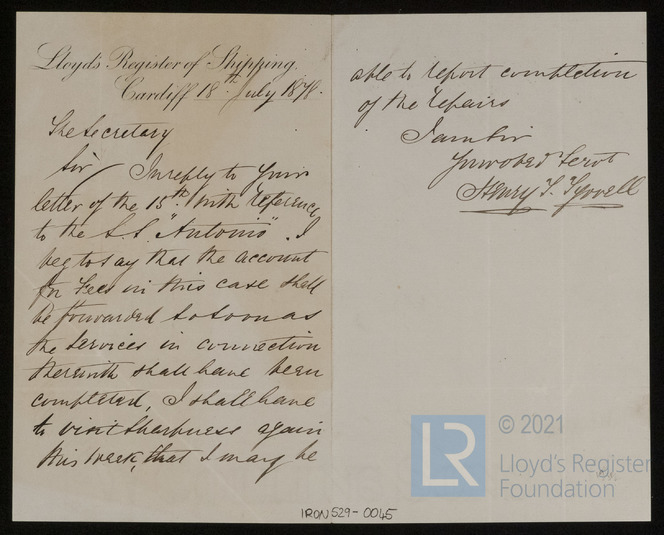 Lloyd's Register of Shipping,
Cardiff 18th July 1878.
The Secretary
Sir / In reply to your
letter of the 15th with reference
to the S.S. "Antonio". I
beg to say that the account
for Fees in this case shall
be forwarded so soon as
the services in connection
therewith shall have been
completed, I shall have
to visit Sharpness again
this week, that I may be
able to report completion
of the repairs
I am Sir
Your obed Servt
Henry J. Tyrrell
© 2021
LR
Lloyd's Register
Foundation
IRON529-0045